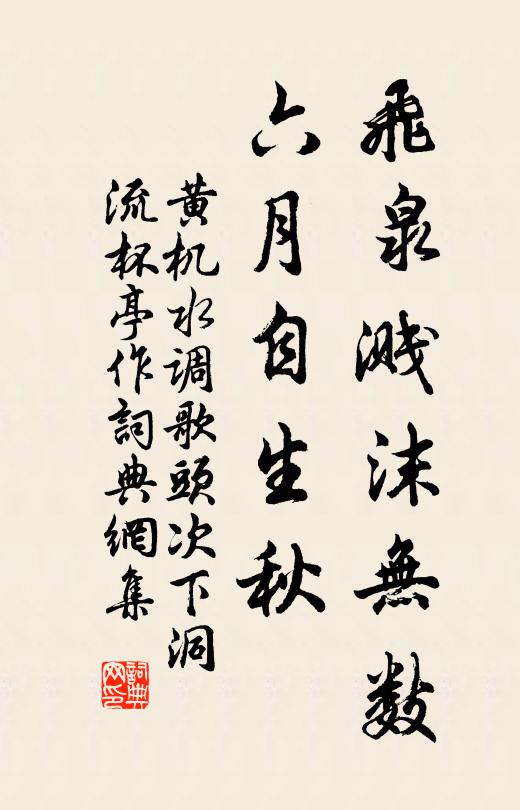 飛泉濺沫無數
六月自生秋
黄机水调歌頭次下洞
流杯亭作詞典網集
詞典网印